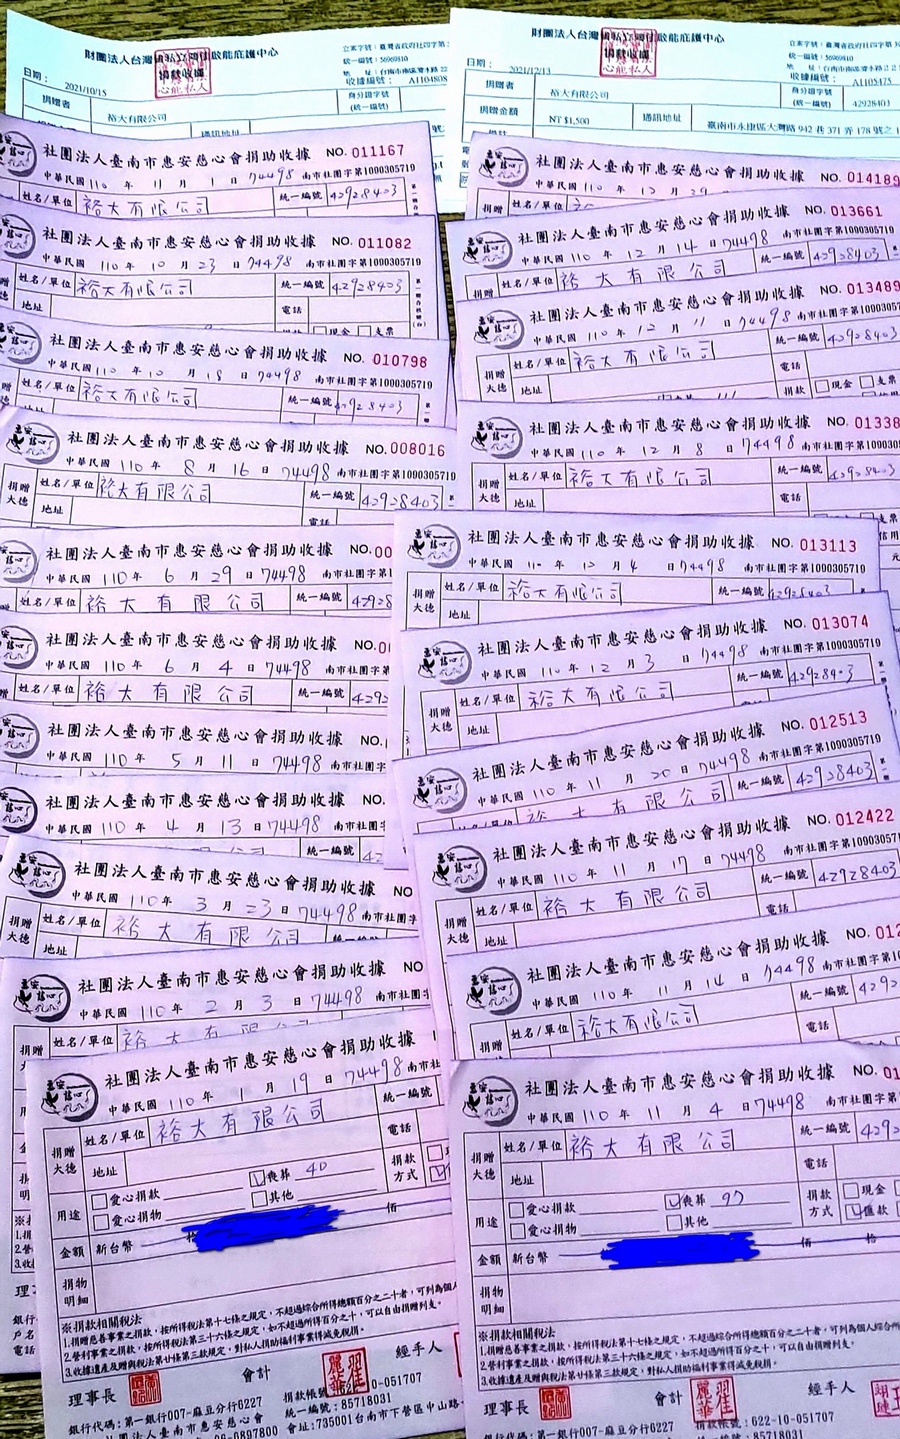 財團法人台灣
啟能庇護中心
捐款收據
日期： 2021/10/15
收據編號：
捐贈者 裕大有限公司
身分證字號
(統一編號)
通訊地址
財團法人台灣
啟能庇護中心
日期： 2021/12/13
統一編號：56969810
捐贈者 裕大有限公司
身分證字號
(統一編號) 42928403
捐贈金額 NT$1,500 通訊地址 臺南市永康區大灣路 942 巷 371 弄 178 號之
社團法人臺南市惠安慈心會捐助收據 NO. 011167
中華民國 110 年 11 月 1 日 74498 南市社團字第1000305719
姓名/單位 裕大有限公司 統一編號 42928403
社團法人臺南市惠安慈心會捐助收據 NO. 011082
中華民國 110 年 10 月 23 日 74498 南市社團字第1000305719
姓名/單位 裕大有限公司 統一編號 42928403
地址 電話
現金 支票
社團法人臺南市惠安慈心會捐助收據 NO. 010798
中華民國 110 年 10 月 18 日 74498 南市社團字第1000305719
姓名/單位 裕大有限公司 統一編號 42928403
社團法人臺南市惠安慈心會捐助收據 NO. 008016
中華民國 110 年 8 月 16 日 74498 南市社團字第1000305719
捐贈大德 姓名/單位 裕大有限公司 統一編號 42928403
地址 電話
社團法人臺南市惠安慈心會捐助收據 NO. 00
中華民國 110 年 6 月 29 日 74498 南市社團字第1
姓名/單位 裕大有限公司 統一編號 42928
社團法人臺南市惠安慈心會捐助收據 NO.
中華民國 110 年 6 月 4 日 74498 南市社團字第
姓名/單位 裕大有限公司 統一編號 4292
社團法人臺南市惠安慈心會捐助收據 NO.
中華民國 110 年 5 月 11 日 74498 南市社團字
社團法人臺南市惠安慈心會捐助收據 NO.
中華民國 110 年 4 月 13 日 74498 南市社團字
社團法人臺南市惠安慈心會捐助收據 NO
中華民國 110 年 3 月 23 日 74498 南市社團字
捐贈大德 姓名/單位 裕大有限公司 統一編號
地址
社團法人臺南市惠安慈心會捐助收據 NO
中華民國 110 年 2 月 3 日 74498 南市社團字
捐贈 姓名/單位 裕大有限公司
社團法人臺南市惠安慈心會捐助收據
中華民國 110 年 1 月 19 日 74498 南市社
捐贈大德 姓名/單位 裕大有限公司 統一編號
地址 電話
用途 愛心捐款 喪葬 40 捐款方式
愛心捐物 其他
金額 新台幣 拾 佰
捐物明細
※捐款相關稅法
1.捐贈慈善事業之捐款，按所得稅法第十七條之規定，不超過綜合所得總額百分之二十者，可列為個人
2.營利事業之捐款，按所得稅法第三十六條之規定，如不超過所得百分之十，可以自由捐贈列支。
3.收據遺產及贈與稅法第廿條第三款規定，對私人捐助福利事業得減免稅捐。
理事長 會計 經手人
銀行代碼：第一銀行007-麻豆分行6227
統一編號：85718031
會址:735001台南市下營區中山路
社團法人臺南市惠安慈心會捐助收據 NO. 014189
中華民國 110 年 12 月 29
姓名/單位
社團法人臺南市惠安慈心會捐助收據 NO. 013661
中華民國 110 年 12 月 14 日 74498 南市社團字第1000305719
姓名/單位 裕大有限公司 統一編號 42928403
社團法人臺南市惠安慈心會捐助收據 NO. 013489
中華民國 110 年 12 月 11 日 74498
捐贈大德 姓名/單位 裕大有限公司 統一編號 42928403
地址 電話
捐款 現金 支票
社團法人臺南市惠安慈心會捐助收據 NO. 01338
中華民國 110 年 12 月 8 日 74498 南市社團字第10003057
捐贈大德 姓名/單位 裕大有限公司 統一編號 42928403
地址 電話
社團法人臺南市惠安慈心會捐助收據 NO. 013113
中華民國 110 年 12 月 4 日 74498 南市社團字第1000305719
捐贈大德 姓名/單位 裕大有限公司 統一編號 42928403
地址
社團法人臺南市惠安慈心會捐助收據 NO. 013074
中華民國 110 年 12 月 3 日 74498 南市社團字第1000305719
捐贈大德 姓名/單位 裕大有限公司 統一編號 42928403
地址
社團法人臺南市惠安慈心會捐助收據 NO. 012513
中華民國 110 年 11 月 20 日 74498 南市社團字第1000305719
裕大有限公司 統一編號 42928403
社團法人臺南市惠安慈心會捐助收據 NO. 012422
中華民國 110 年 11 月 17 日 74498 南市社團字第10003057
捐贈大德 姓名/單位 裕大有限公司 統一編號 42928403
地址 電話
社團法人臺南市惠安慈心會捐助收據 NO. 012
中華民國 110 年 11 月 14 日 74498 南市社團字第1000
捐贈大德 姓名/單位 裕大有限公司 統一編號 4292
地址 電話
社團法人臺南市惠安慈心會捐助收據 NO. 01
中華民國 110 年 11 月 4 日 74498 南市社團字第100
捐贈大德 姓名/單位 裕大有限公司 統一編號 4292
地址 電話
用途 愛心捐款 喪葬 97 捐款方式 現金
愛心捐物 其他 匯款
金額 新台幣 佰 拾
捐物明細
※捐款相關稅法
1.捐贈慈善事業之捐款，按所得稅法第十七條之規定，不超過綜合所得總額百分之二十者，可列為個人綜合所得
2.營利事業之捐款，按所得稅法第三十六條之規定，如不超過所得百分之十，可以自由捐贈列支。
3.收據遺產及贈與稅法第廿條第三款規定，對私人捐助福利事業得減免稅捐。
理事長 會計 經手人
銀行代碼：第一銀行007-麻豆分行6227 捐款帳號：622-10-051707
統一編號：85718031